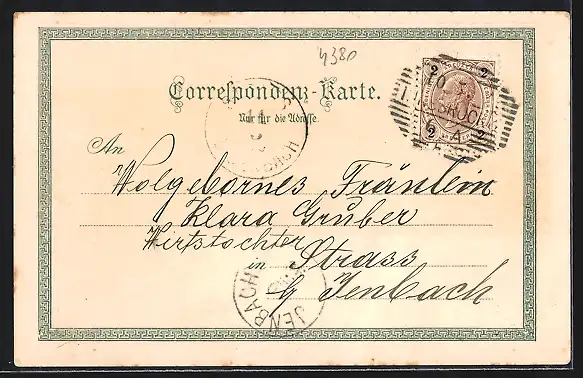 4380
Correspondenz-Karte.
Nur für die Adresse.
An
Wolgebornes Fräulein
Klara Gruber
Wirtstochter
in Strass
b/ Jenbach
2 2
2 2
JENBACH